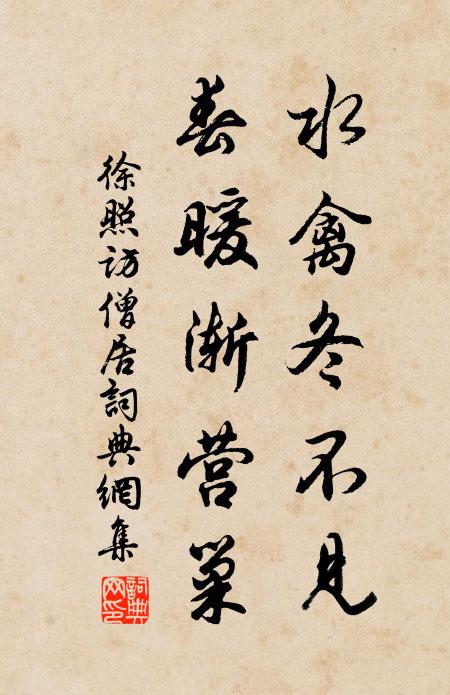 水禽冬不见
春暖渐营巢
徐照訪僧居詞典網集
詞典網印